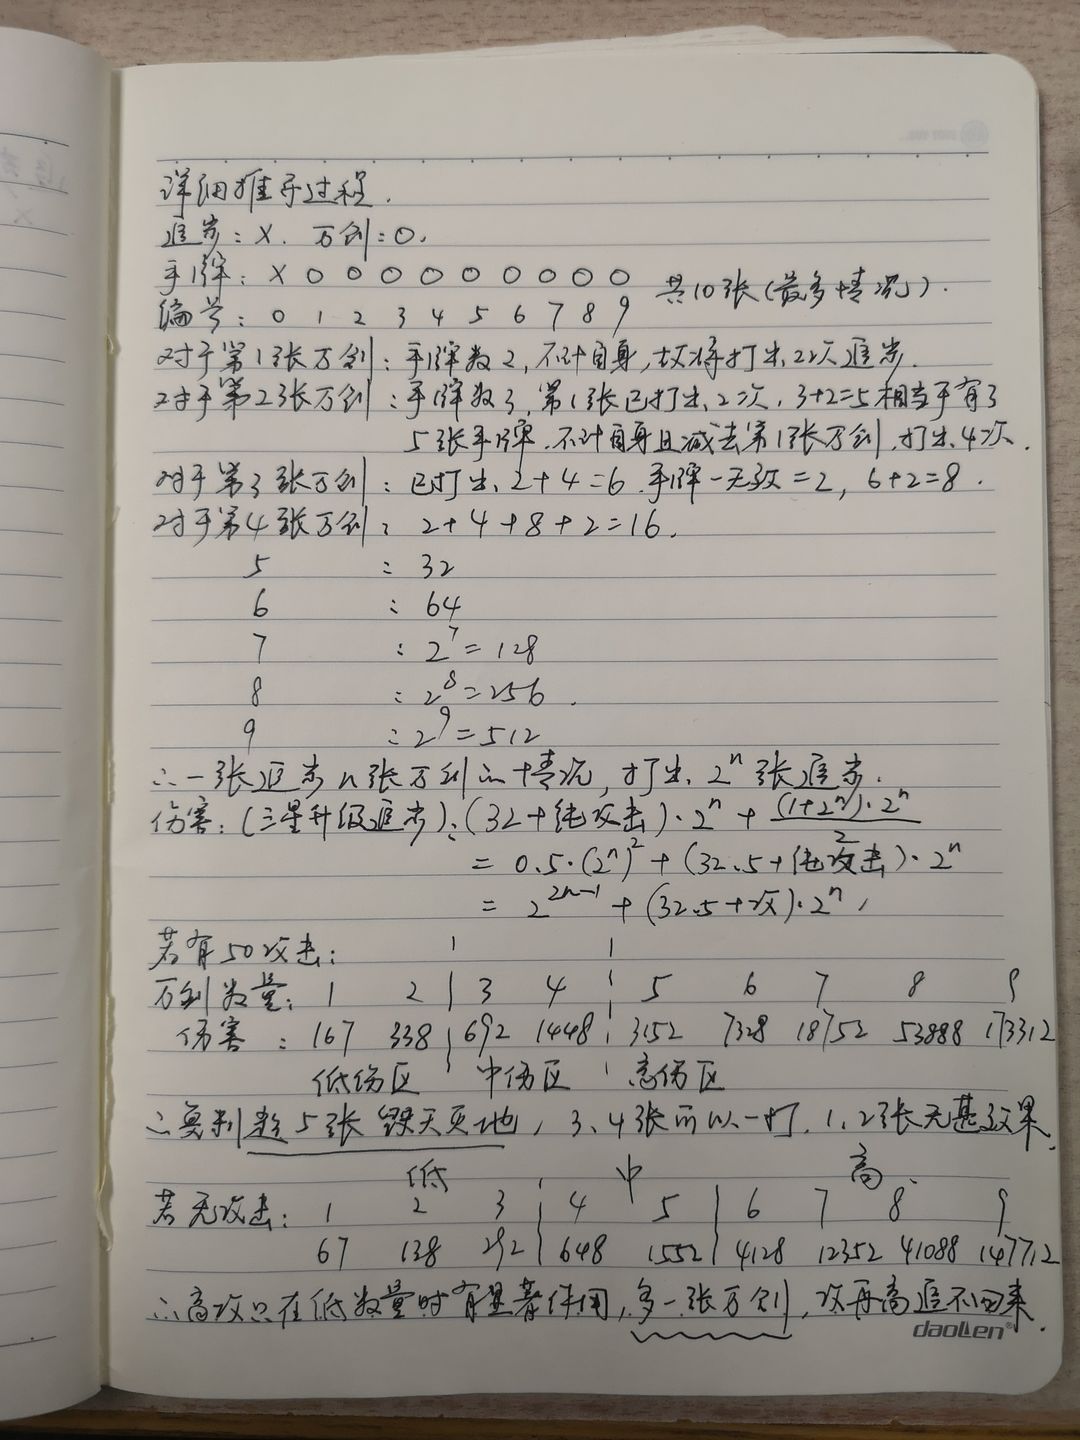 详细推导过程.
追岁: X. 万剑: O.
手牌: X O O O O O O O O O 共10张(最多情况).
编号: 0 1 2 3 4 5 6 7 8 9
对于第1张万剑: 手牌数2, 不计自身, 故将打出2次追岁.
对于第2张万剑: 手牌数3, 第1张已打出2次, 3+2=5相当于有了
5张手牌. 不计自身且减去第1张万剑, 打出4次.
对于第3张万剑: 已打出2+4=6 手牌-无效=2, 6+2=8.
对于第4张万剑: 2+4+8+2=16.
5 : 32
6 : 64
7 : 2⁷=128
8 : 2⁸=256.
9 : 2⁹=512
∴一张追岁n张万剑的情况, 打出2ⁿ张追岁.
伤害: (三星升级追岁): (32+纯攻击)·2ⁿ + (1+2ⁿ)·2ⁿ/2
= 0.5·(2ⁿ)² + (32.5+纯攻击)·2ⁿ
= 2²ⁿ⁻¹ + (32.5+攻)·2ⁿ,
若有50攻击:
万剑数量: 1 2 3 4 5 6 7 8 9
伤害: 167 338 692 1448 3152 7328 18752 53888 173312
低伤区 中伤区 高伤区
∴ 5张毁天灭地, 3、4张可以一打, 1、2张无甚效果.
低 中 高
若无攻击: 1 2 3 4 5 6 7 8 9
67 138 292 648 1552 4128 12352 41088 147712
∴高攻只在低数量时有显著作用, 多一张万剑, 攻再高追不回来.
daoLen®